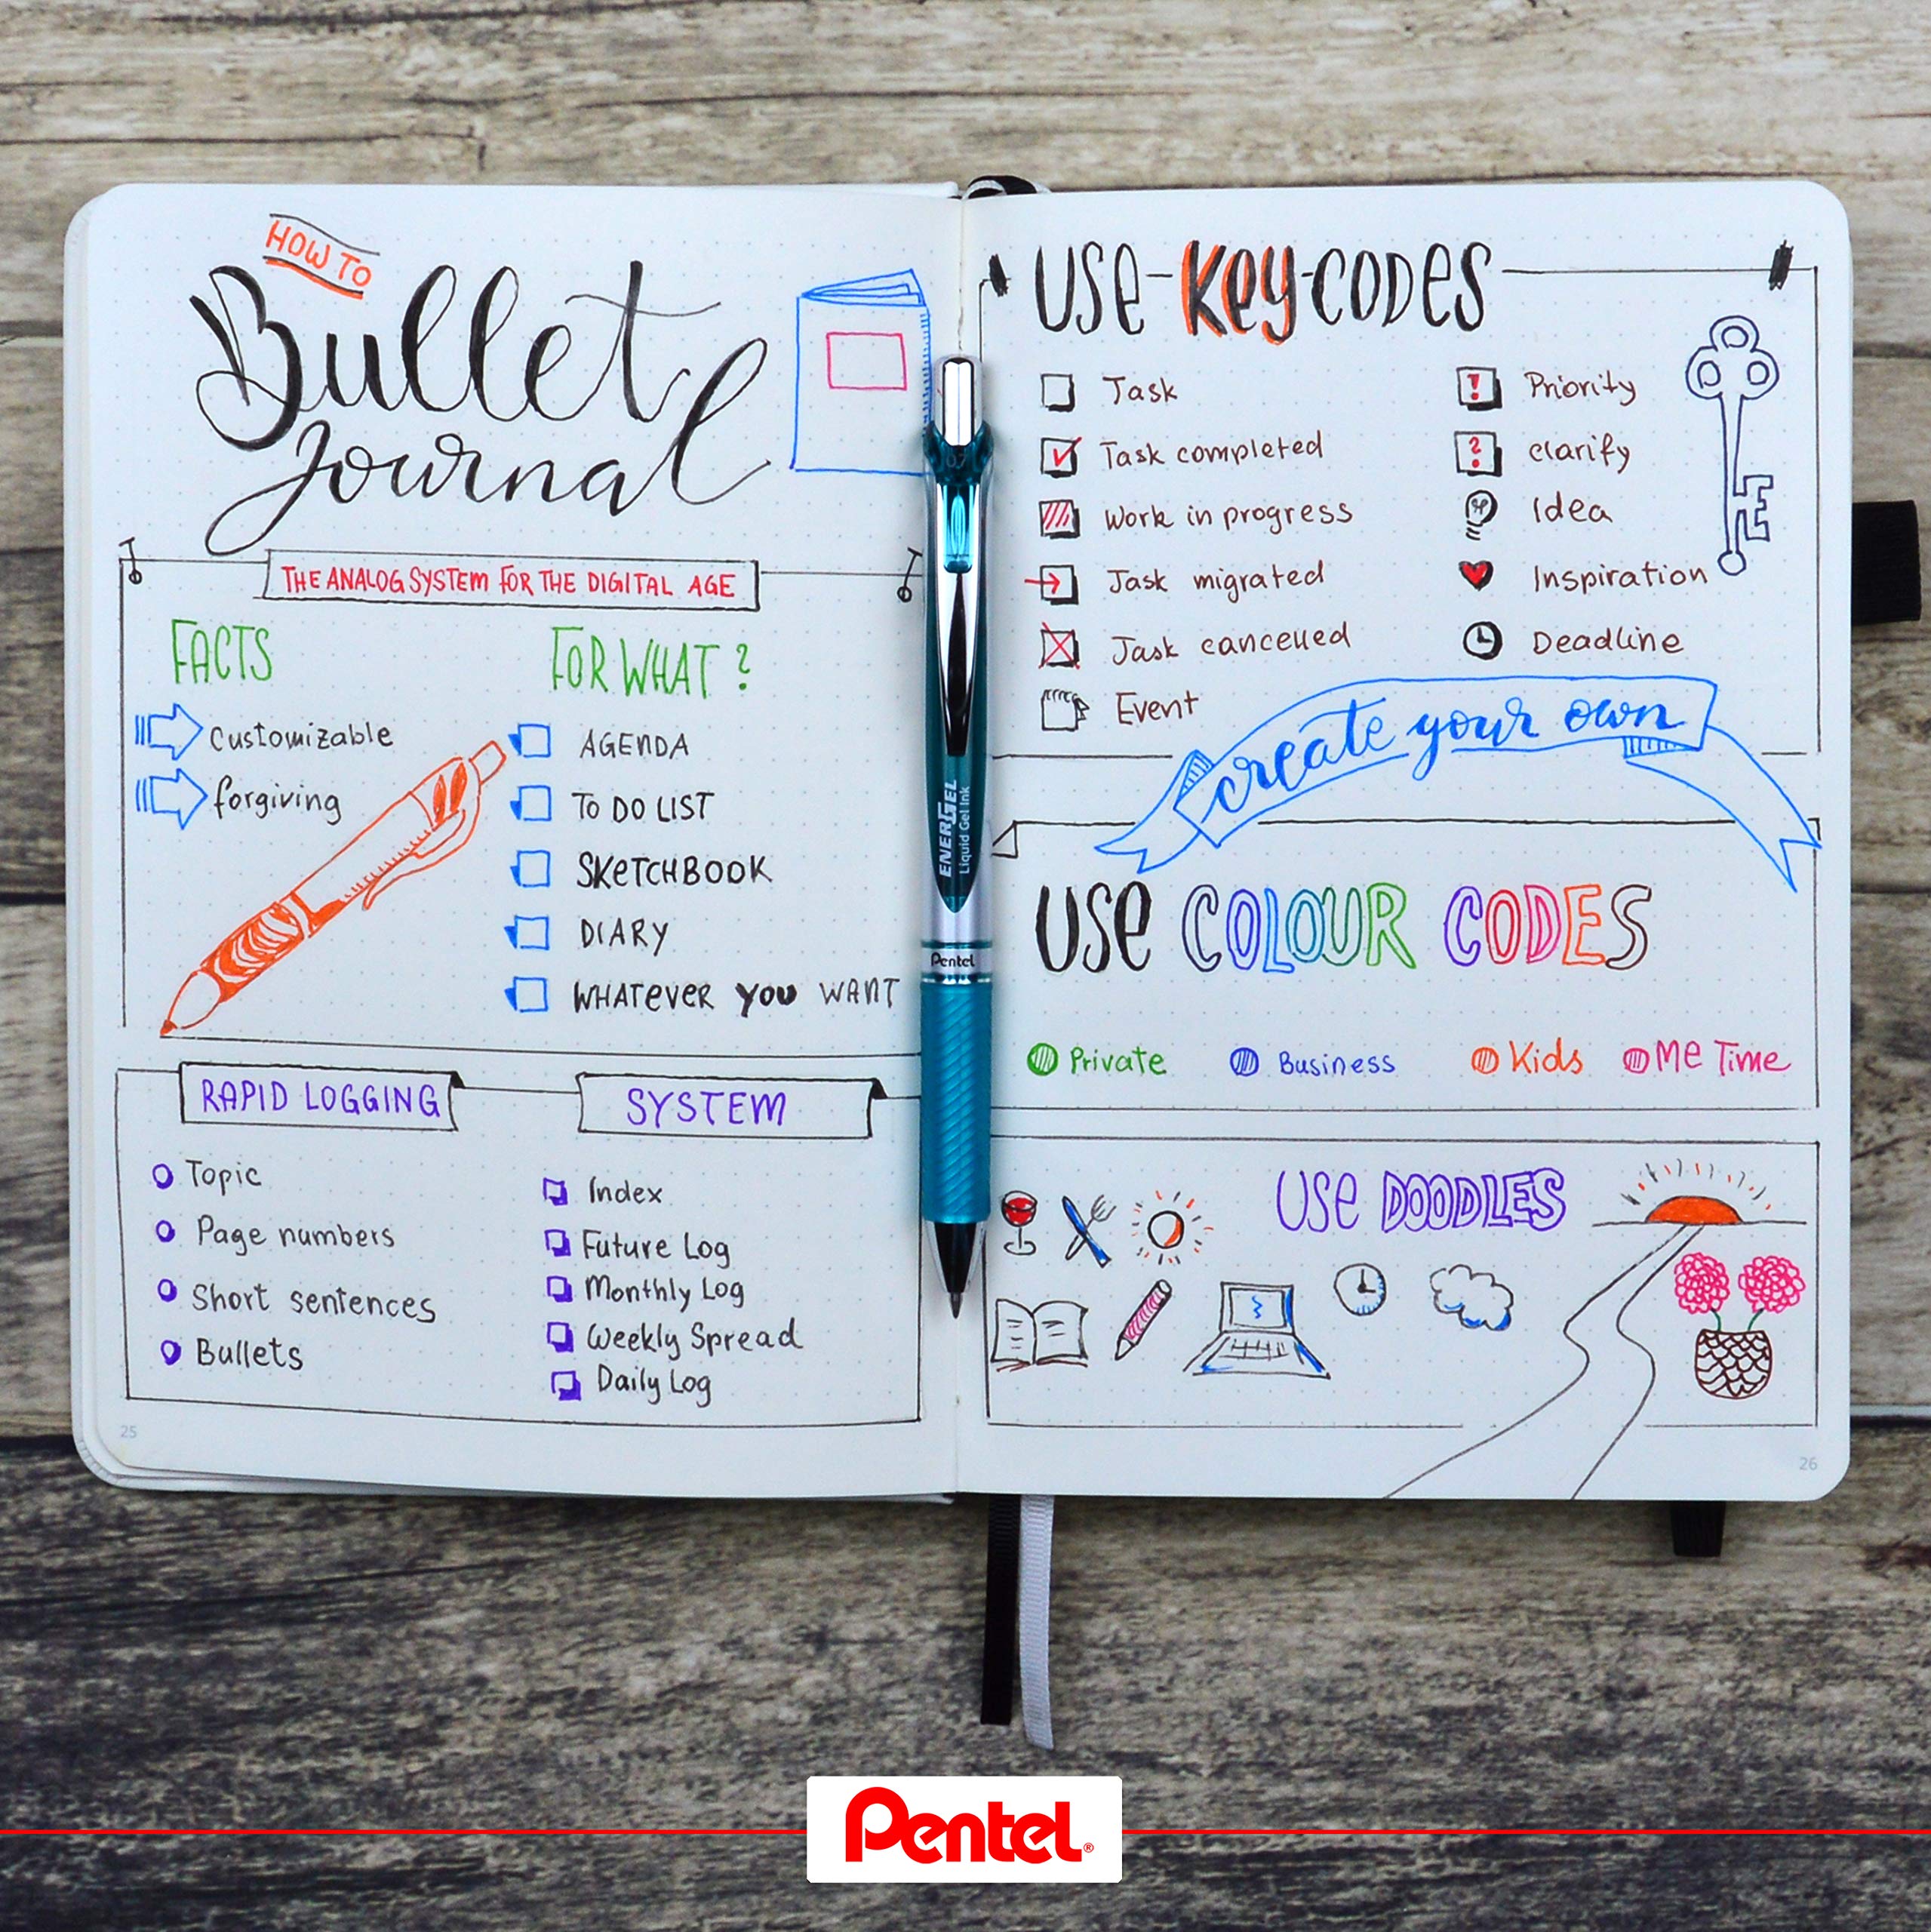 HOW TO
Bullet
Journal
THE ANALOG SYSTEM FOR THE DIGITAL AGE
FACTS
customizable
forgiving
FOR WHAT?
AGENDA
TO DO LIST
SKETCHBOOK
DIARY
WHATEVER YOU WANT
RAPID LOGGING
Topic
Page numbers
Short sentences
Bullets
SYSTEM
Index
Future Log
Monthly Log
Weekly Spread
Daily Log
25
07
ENERGEL
Liquid Gel Ink
Pentel
USE-KEY-CODES
Task
Task completed
Work in progress
Task migrated
Task cancelled
Event
! Priority
? clarify
Idea
Inspiration
Deadline
create your own
USE COLOUR CODES
Private
Business
Kids
Me Time
USE DOODLES
26
Pentel®